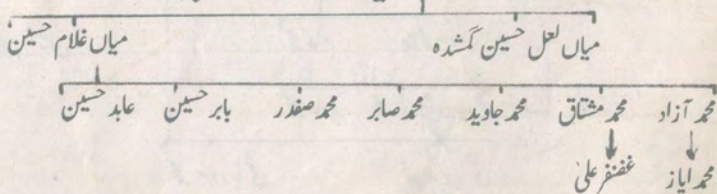 میاں لعل حسین گمشدہ میاں غلام حسین
محمد آزاد محمد مشتاق محمد جاوید محمد صابر محمد صفدر بابر حسین عابد حسین
محمد ایاز غضنفر علی